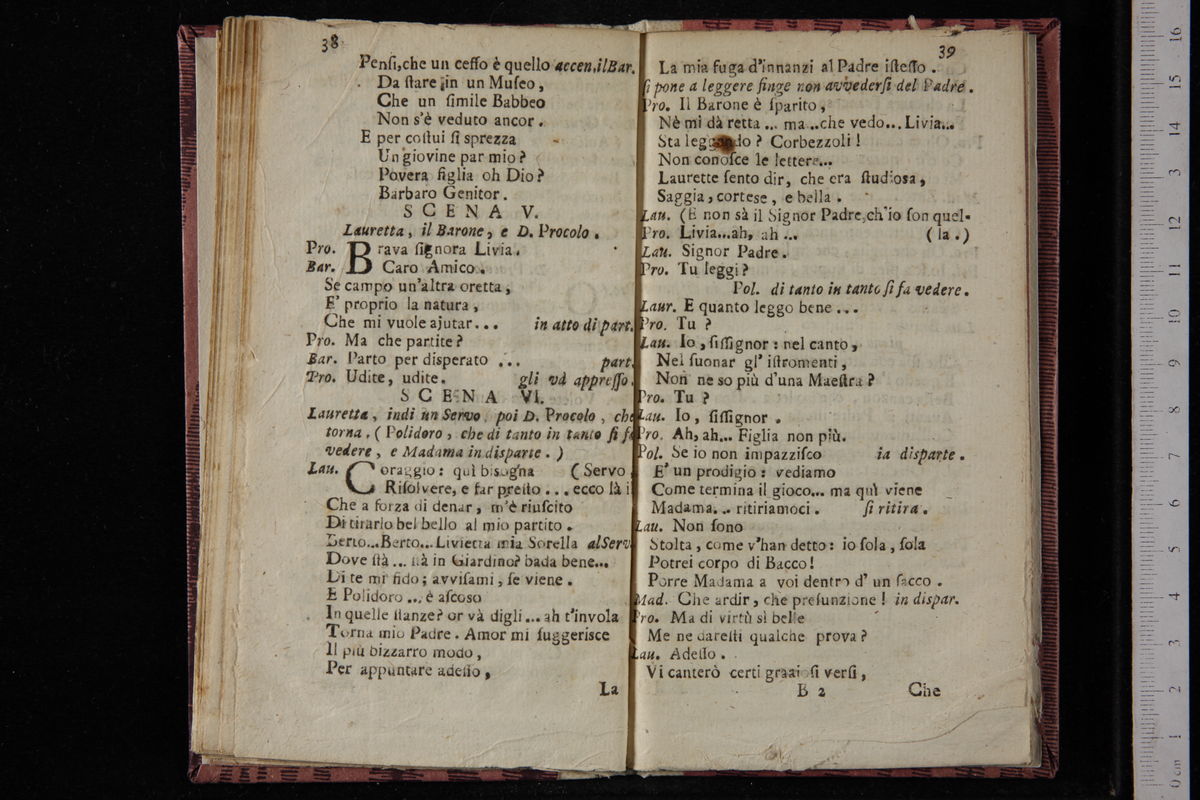 38
Penſi, che un ceffo è quello accen. il Bar.
Da ſtare in un Muſeo,
Che un ſimile Babbeo
Non s'è veduto ancor.
E per coſtui ſi sprezza
Un giovine par mio?
Povera figlia oh Dio?
Barbaro Genitor.
SCENA V.
Lauretta, il Barone, e D. Procolo.
Pro. Brava ſignora Livia.
Bar. Caro Amico.
Se campo un'altra oretta,
E' proprio la natura,
Che mi vuole ajutar... in atto di part.
Pro. Ma che partite?
Bar. Parto per disperato ... part.
Pro. Udite, udite. gli và appreſſo.
SCENA VI.
Lauretta, indi un Servo, poi D. Procolo, che
torna. (Polidoro, che di tanto in tanto ſi fa
vedere, e Madama in disparte.)
Lau. Coraggio: quì biſogna (Servo
Riſolvere, e far preſto... ecco là il
Che a forza di denar, m'è riuſcito
Di tirarlo bel bello al mio partito.
Berto...Berto...Livietta mia Sorella al Serv.
Dove ſtà... ſtà in Giardino? bada bene...
Di te mi fido; avviſami, ſe viene.
E Polidoro... è aſcoso
In quelle ſtanze? or và digli... ah t'invola
Torna mio Padre. Amor mi ſuggerisce
Il più bizzarro modo,
Per appuntare adeſſo,
La
39
La mia fuga d'innanzi al Padre iſteſſo.
ſi pone a leggere finge non avvederſi del Padre.
Pro. Il Barone è ſparito,
Nè mi dà retta... ma..che vedo...Livia...
Sta leggendo? Corbezzoli!
Non conoſce le lettere...
Laurette ſento dir, che era ſtudiosa,
Saggia, cortese, e bella.
Lau. (E non sà il Signor Padre, ch'io ſon quel-
Pro. Livia...ah, ah... (la.)
Lau. Signor Padre.
Pro. Tu leggi?
Pol. di tanto in tanto ſi fa vedere.
Laur. E quanto leggo bene...
Pro. Tu?
Lau. Io, ſiſſignor: nel canto,
Nel ſuonar gl' iſtromenti,
Non ne so più d'una Maeſtra?
Pro. Tu?
Lau. Io, ſiſſignor.
Pro. Ah, ah... Figlia non più.
Pol. Se io non impazziſco ia disparte.
E' un prodigio: vediamo
Come termina il gioco... ma quì viene
Madama... ritiriamoci. ſi ritira.
Lau. Non ſono
Stolta, come v'han detto: io ſola, ſola
Potrei corpo di Bacco!
Porre Madama a voi dentro d' un ſacco.
Mad. Che ardir, che preſunzione! in dispar.
Pro. Ma di virtù sì belle
Me ne dareſti qualche prova?
Lau. Adeſſo.
Vi canterò certi ſi verſi,
B 2 Che